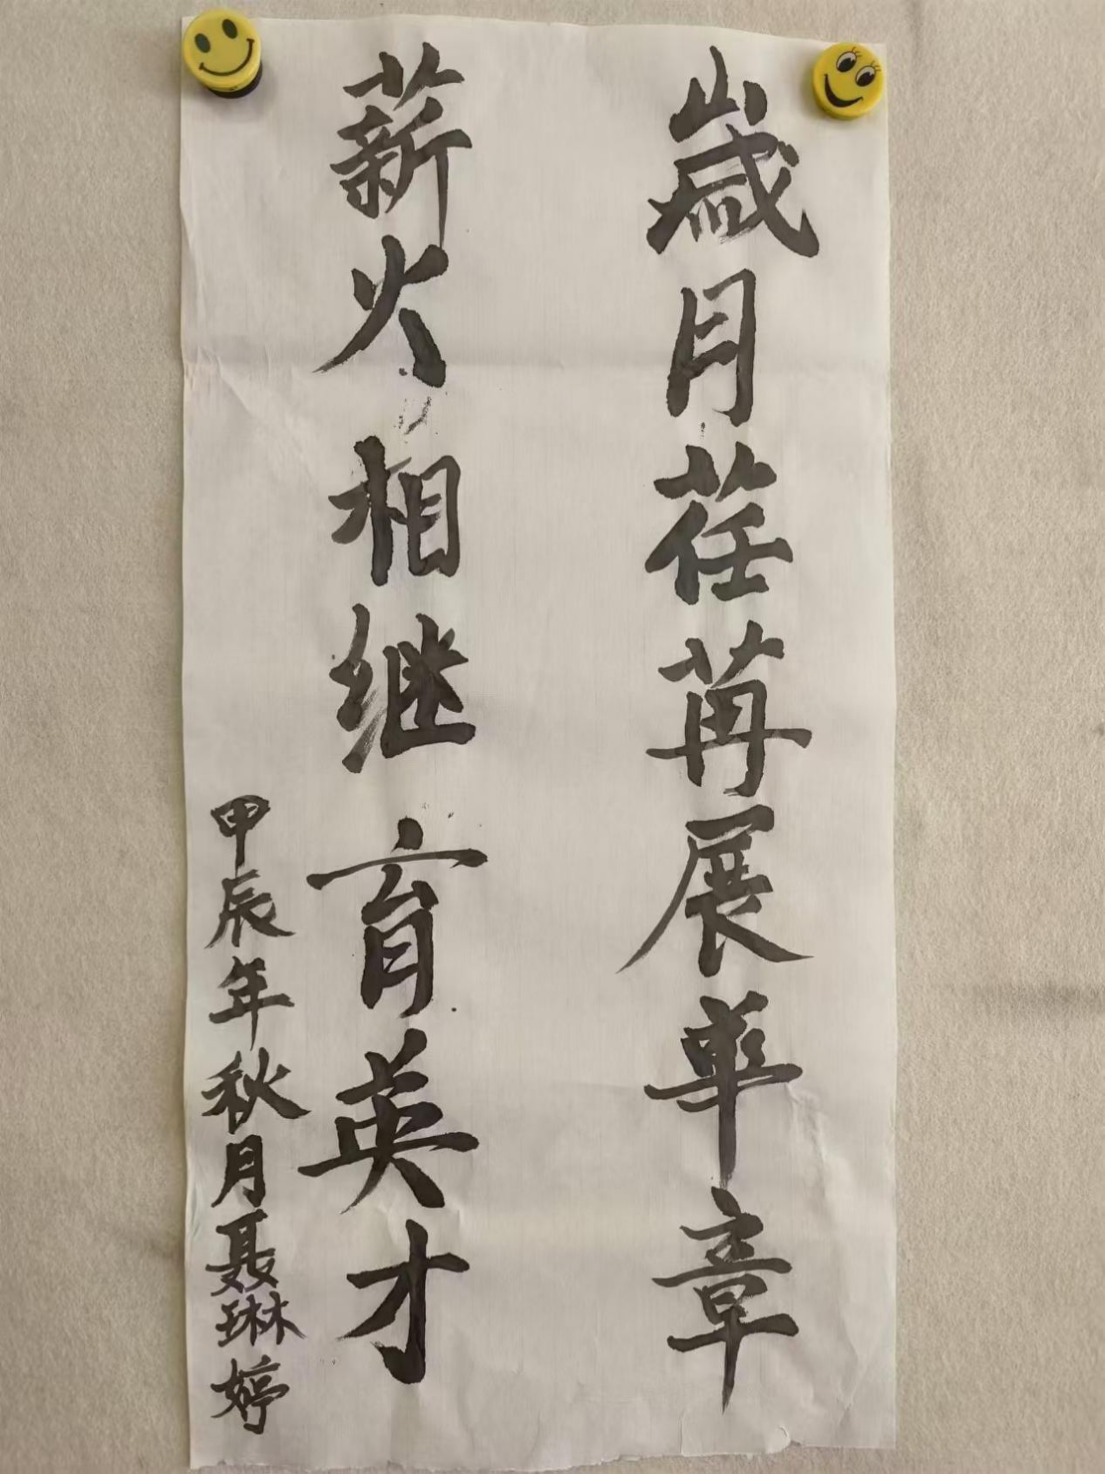 歲月荏苒展華章
薪火相继育英才
甲辰年秋月聂琳婷